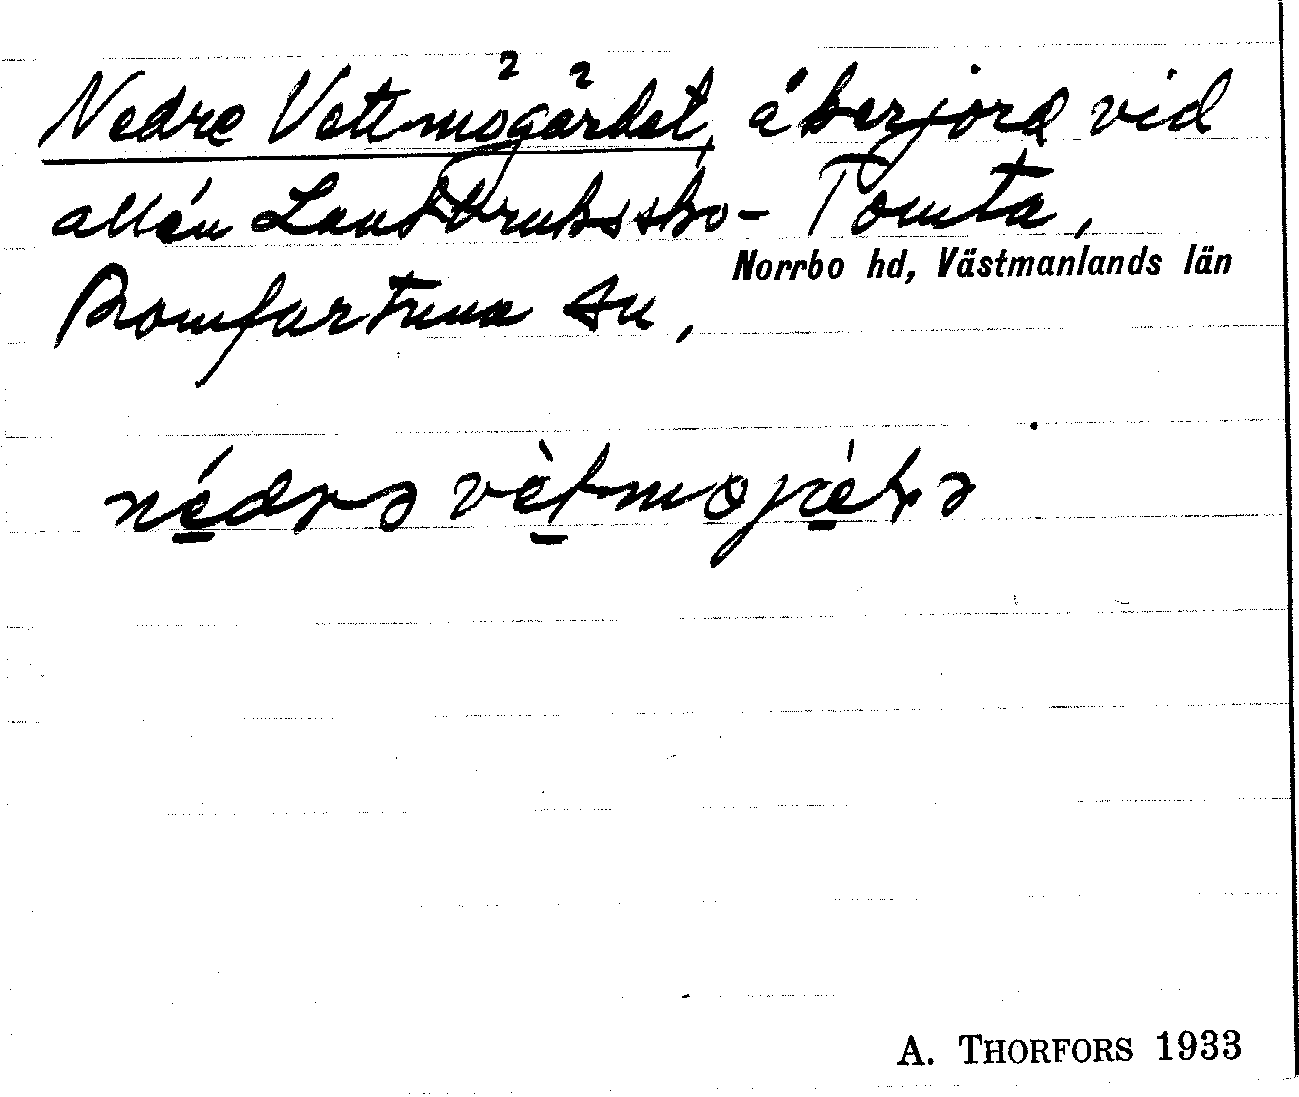 Nedre Vettmogärdet, åkerjord vid
allén Landtbruksskо- Tomta,
Norrbo hd, Västmanlands län
Romfartuna sn,
nédrə vètmojæ̀ḷə
A. THORFORS 1933